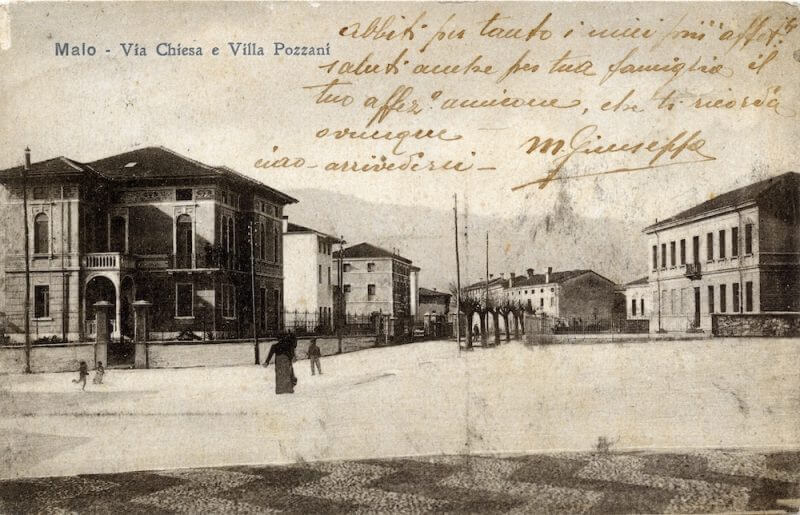 Malo - Via Chiesa e Villa Pozzani
Abbiti per tanto i miei più affett.
saluti anche per tua famiglia il
tuo affez.º amicone, che ti ricorda
ovunque
ciao - arrivederci -
M. Giuseppe